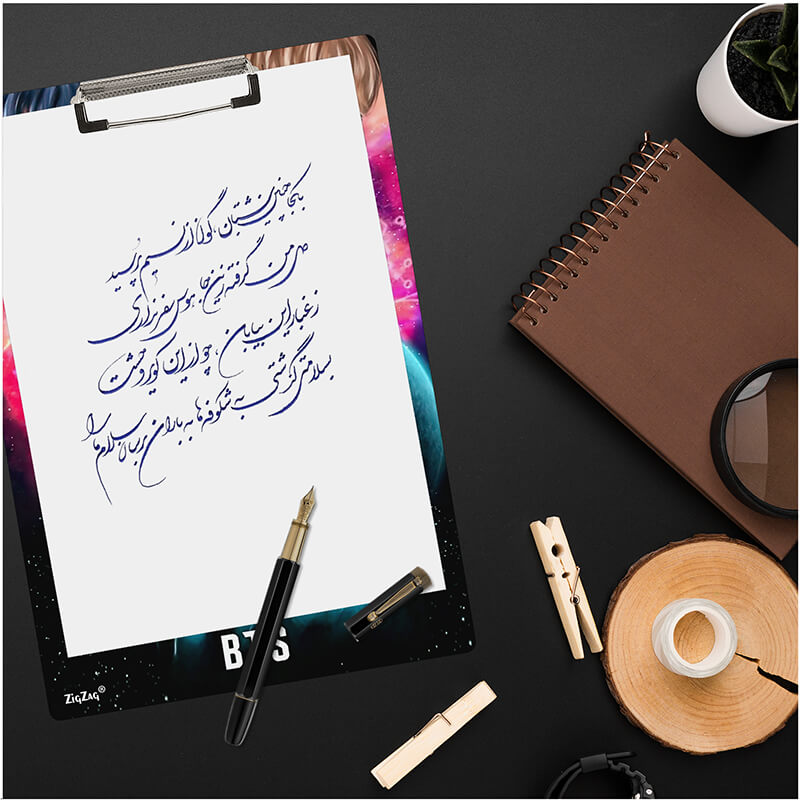 بکجا چنین شتابان، گون از نسیم پرسید
دل من گرفته زین جا هوس سفر نداری
ز غبار این بیابان، چو از این کویر وحشت
بسلامتی گذشتی به شکوفه‌ها به باران برسان سلام ما را
BTS
ZIGZAG®